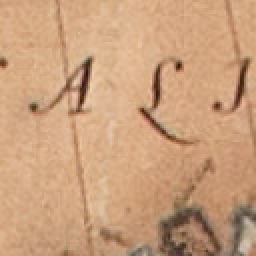 A L I